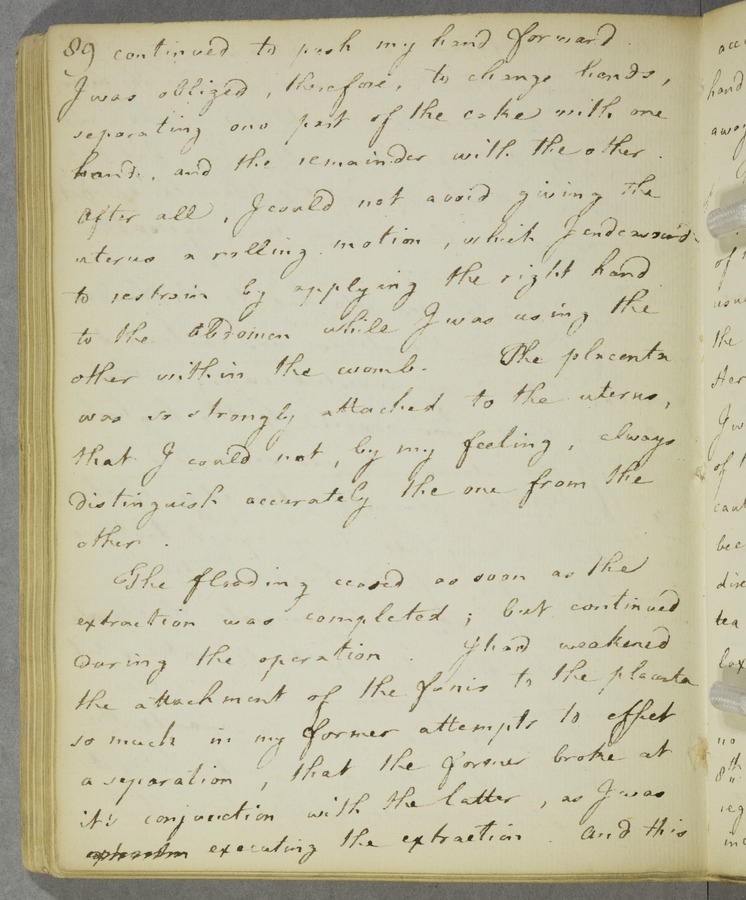 89 continued to push my hand forward.
I was obliged, therefore, to change hands,
separating one part of the cake with one
hand, and the remainder with the other.
After all, I could not avoid giving the
uterus a rolling motion, which I endeavour'd
to restrain by applying the right hand
to the abdomen while I was using the
other within the womb. The placenta
was so strongly attached to the uterus,
that I could not, by my feeling, always
distinguish accurately the one from the
other.
The flooding ceased as soon as the
extraction was completed; but continued
during the operation. I had weakened
the attachment of the funis to the placenta
so much in my former attempts to effect
a separation, that the former broke at
it's conjunction with the latter, as I was
executing the extraction. And this
acc
hand
away
of
the
Her
I w
of
caut
bee
dire
tea
lax
no
8th
reg